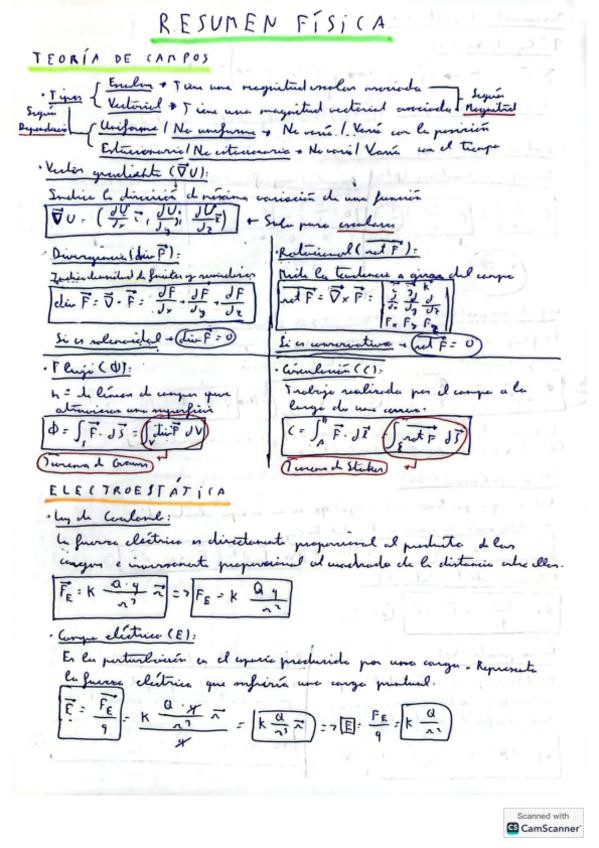 RESUMEN FÍSICA
TEORÍA DE CAMPOS
· Tipos
Según Dependencia
Escalar → Tiene una magnitud escalar asociada
Vectorial → Tiene una magnitud vectorial asociada
Según Magnitud
Uniforme / No uniforme → No varía / Varía con la posición
Estacionario / No estacionario → No varía / Varía con el tiempo
· Vector gradiente (∇U):
Indica la dirección de máxima variación de una función
∇U = (dU/dx i, dU/dy j, dU/dz k) ← Solo para escalares
· Divergencia (div F):
Indica densidad de fuentes y sumideros
div F = ∇ · F = dF/dx + dF/dy + dF/dz
Si es solenoidal → div F = 0
· Rotacional (rot F):
Mide la tendencia a girar del campo
rot F = ∇ x F = | i j k |
d/dx d/dy d/dz
Fx Fy Fz
Si es conservativo → rot F = 0
· Flujo (Φ):
n = de líneas de campo que
atraviesan una superficie
Φ = ∫s F · dS = ∫v div F dV
Teorema de Gauss
· Circulación (C):
Trabajo realizado por el campo a lo
largo de una curva.
C = ∫A^B F · dr = ∫s rot F dS
Teorema de Stokes
ELECTROESTÁTICA
· Ley de Coulomb:
La fuerza eléctrica es directamente proporcional al producto de las
cargas e inversamente proporcional al cuadrado de la distancia entre ellas.
FE = K Q · q / r³ r => FE = K Q q / r²
· Campo eléctrico (E):
Es la perturbación en el espacio producida por una carga. Representa
la fuerza eléctrica que sufriría una carga puntual.
E = FE / q = K Q · q / r³ r / q = K Q / r³ r => E = FE / q = K Q / r²
Scanned with
CS CamScanner